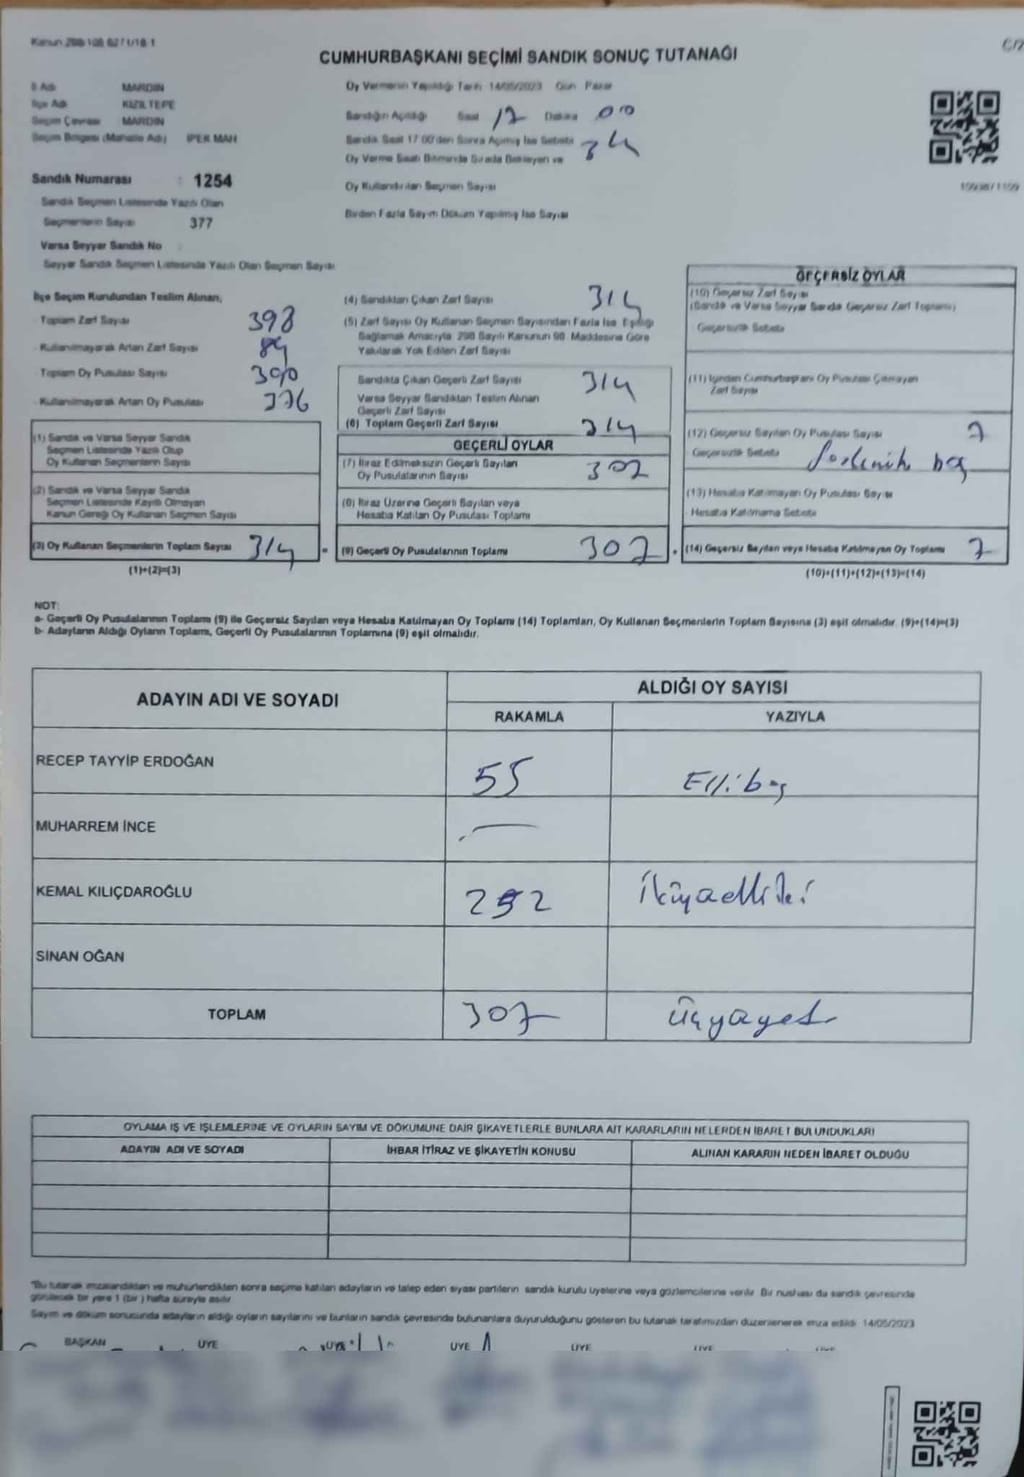 Kanun 298/108 6271/18.1
C/2
CUMHURBAŞKANI SEÇİMİ SANDIK SONUÇ TUTANAĞI
İl Adı MARDİN
İlçe Adı KIZILTEPE
Seçim Çevresi MARDİN
Seçim Bölgesi (Mahalle Adı) İPEK MAH
Sandık Numarası : 1254
Sandık Seçmen Listesinde Yazılı Olan
Seçmenlerin Sayısı 377
Varsa Seyyar Sandık No
Seyyar Sandık Seçmen Listesinde Yazılı Olan Seçmen Sayısı
Oy Vermenin Yapıldığı Tarih 14/05/2023 Gün Pazar
Sandığın Açıldığı Saat 17 Dakika 00
Sandık Saat 17.00'den Sonra Açılmış İse Sebebi
Oy Verme Saati Bitiminde Sırada Bekleyen ve
Oy Kullandırılan Seçmen Sayısı
Birden Fazla Sayım Döküm Yapılmış İse Sayısı
İlçe Seçim Kurulundan Teslim Alınan,
Toplam Zarf Sayısı 398
Kullanılmayarak Artan Zarf Sayısı 84
Toplam Oy Pusulası Sayısı 390
Kullanılmayarak Artan Oy Pusulası
(1) Sandık ve Varsa Seyyar Sandık
Seçmen Listesinde Yazılı Olup
Oy Kullanan Seçmenlerin Sayısı
(2) Sandık ve Varsa Seyyar Sandık
Seçmen Listesinde Kayıtlı Olmayan
Kanun Gereği Oy Kullanan Seçmen Sayısı
(3) Oy Kullanan Seçmenlerin Toplam Sayısı 314
(1)+(2)=(3)
(4) Sandıktan Çıkan Zarf Sayısı 314
(5) Zarf Sayısı Oy Kullanan Seçmen Sayısından Fazla İse Eşitliği
Sağlamak Amacıyla 298 Sayılı Kanunun 98. Maddesine Göre
Yakılarak Yok Edilen Zarf Sayısı
Sandıkta Çıkan Geçerli Zarf Sayısı 314
Varsa Seyyar Sandıktan Teslim Alınan
Geçerli Zarf Sayısı
(6) Toplam Geçerli Zarf Sayısı 314
GEÇERLİ OYLAR
(7) İtiraz Edilmeksizin Geçerli Sayılan
Oy Pusulalarının Sayısı 307
(8) İtiraz Üzerine Geçerli Sayılan veya
Hesaba Katılan Oy Pusulası Toplamı
= (9) Geçerli Oy Pusulalarının Toplamı 307
GEÇERSİZ OYLAR
(10) Geçersiz Zarf Sayısı
(Sandık ve Varsa Seyyar Sandık Geçersiz Zarf Toplamı)
Geçersizlik Sebebi
(11) İçinden Cumhurbaşkanı Oy Pusulası Çıkmayan
Zarf Sayısı
(12) Geçersiz Sayılan Oy Pusulası Sayısı 7
Geçersizlik Sebebi
(13) Hesaba Katılmayan Oy Pusulası Sayısı
Hesaba Katılmama Sebebi
+ (14) Geçersiz Sayılan veya Hesaba Katılmayan Oy Toplamı 7
(10)+(11)+(12)+(13)=(14)
NOT:
a- Geçerli Oy Pusulalarının Toplamı (9) ile Geçersiz Sayılan veya Hesaba Katılmayan Oy Toplamı (14) Toplamları, Oy Kullanan Seçmenlerin Toplam Sayısına (3) eşit olmalıdır. (9)+(14)=(3)
b- Adayların Aldığı Oyların Toplamı, Geçerli Oy Pusulalarının Toplamına (9) eşit olmalıdır.
ADAYIN ADI VE SOYADI
ALDIĞI OY SAYISI
RAKAMLA YAZIYLA
RECEP TAYYİP ERDOĞAN 55 Ellibeş
MUHARREM İNCE —
KEMAL KILIÇDAROĞLU 252 İkiyüzelliiki
SİNAN OĞAN
TOPLAM 307 Üçyüzyedi
OYLAMA İŞ VE İŞLEMLERİNE VE OYLARIN SAYIM VE DÖKÜMÜNE DAİR ŞİKAYETLERLE BUNLARA AİT KARARLARIN NELERDEN İBARET BULUNDUKLARI
ADAYIN ADI VE SOYADI İHBAR İTİRAZ VE ŞİKAYETİN KONUSU ALINAN KARARIN NEDEN İBARET OLDUĞU
*Bu tutanak imzalandıktan ve mühürlendikten sonra seçime katılan adayların ve talep eden siyasi partilerin sandık kurulu üyelerine veya gözlemcilerine verilir. Bir nushası da sandık çevresinde
görülecek bir yere 1 (bir) hafta süreyle asılır.
Sayım ve döküm sonucunda adayların aldığı oyların sayılarını ve bunların sandık çevresinde bulunanlara duyurulduğunu gösteren bu tutanak tarafımızdan düzenlenerek imza edildi. 14/05/2023
BAŞKAN ÜYE ÜYE ÜYE ÜYE ÜYE ÜYE